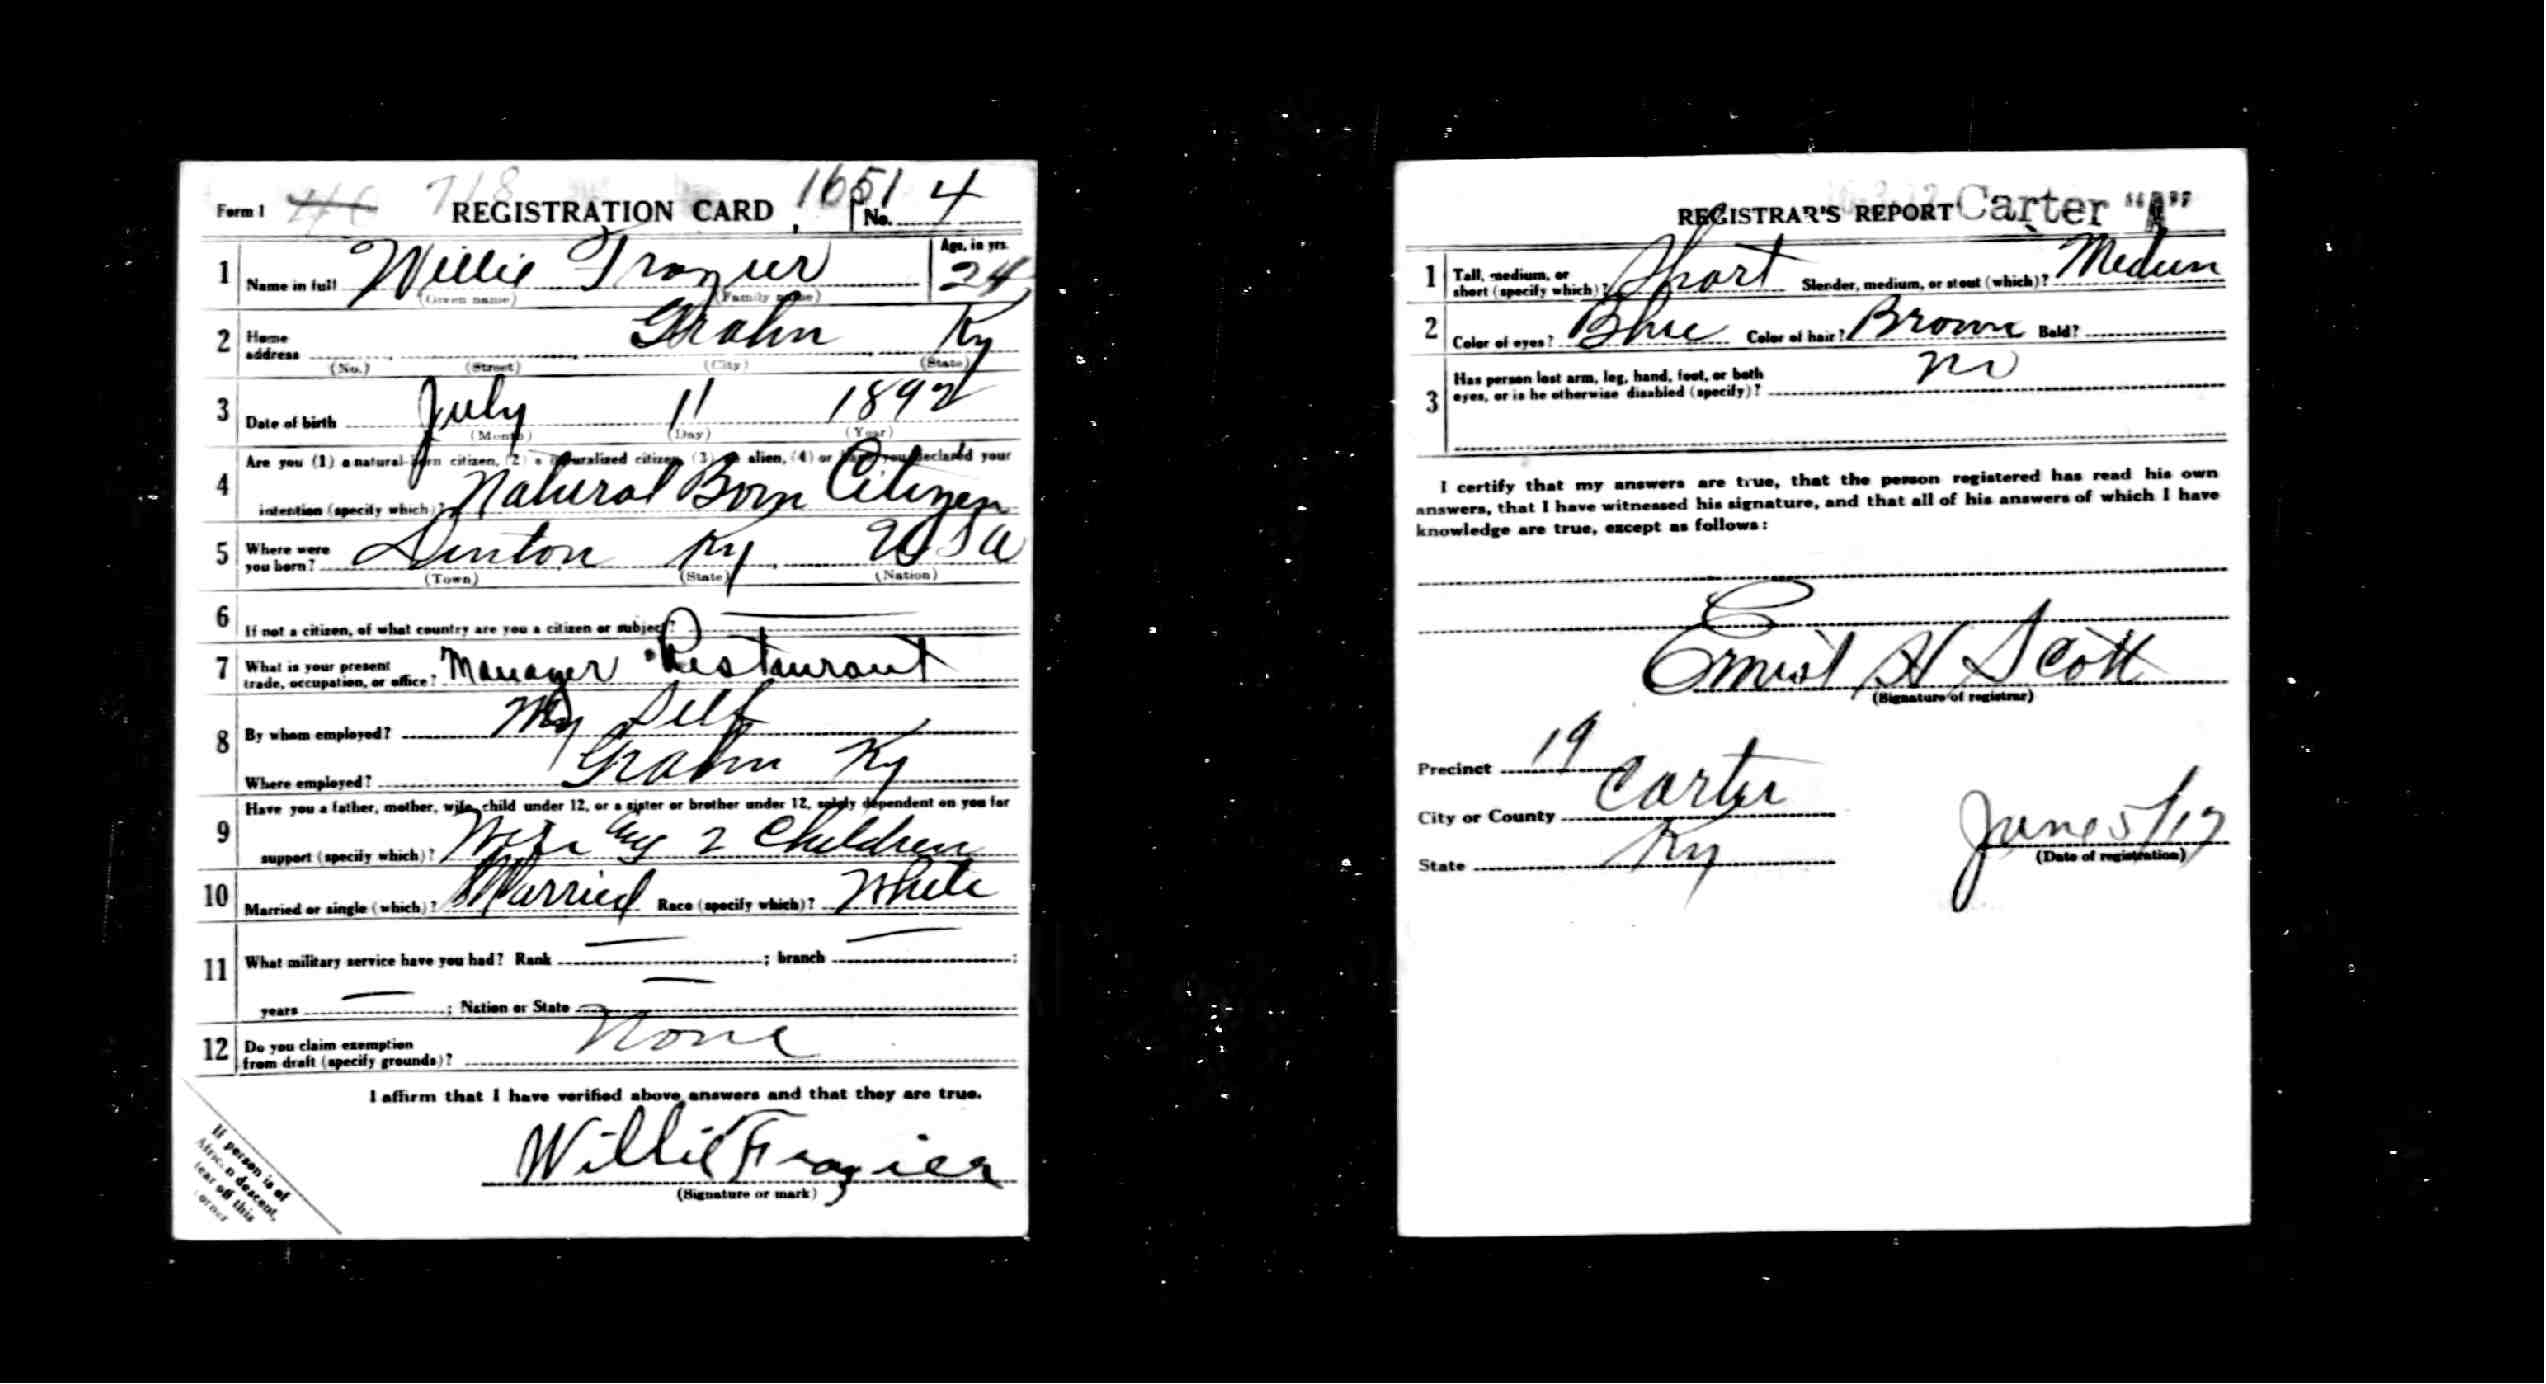 Form 1 718 REGISTRATION CARD 1651 No. 4
1 Name in full Willie Frazier Age, in yrs. 24
(Given name) (Family name)
2 Home address Grahn Ky
(No.) (Street) (City) (State)
3 Date of birth July 11 1892
(Month) (Day) (Year)
4 Are you (1) a natural-born citizen, (2) a naturalized citizen, (3) an alien, (4) or have you declared your
intention (specify which)? Natural Born Citizen
5 Where were you born? Denton Ky USA
(Town) (State) (Nation)
6 If not a citizen, of what country are you a citizen or subject?
7 What is your present trade, occupation, or office? Manager Restaurant
8 By whom employed? My Self
Where employed? Grahn Ky
9 Have you a father, mother, wife, child under 12, or a sister or brother under 12, solely dependent on you for
support (specify which)? Wife 2 Children
10 Married or single (which)? Married Race (specify which)? White
11 What military service have you had? Rank — ; branch — ;
years — ; Nation or State —
12 Do you claim exemption from draft (specify grounds)? None
I affirm that I have verified above answers and that they are true.
Willie Frazier
(Signature or mark)
If person is of
African descent,
tear off this
corner
REGISTRAR'S REPORT Carter "A"
1 Tall, medium, or short (specify which)? Short Slender, medium, or stout (which)? Medium
2 Color of eyes? Blue Color of hair? Brown Bald?
3 Has person lost arm, leg, hand, foot, or both
eyes, or is he otherwise disabled (specify)? No
I certify that my answers are true, that the person registered has read his own
answers, that I have witnessed his signature, and that all of his answers of which I have
knowledge are true, except as follows:
Ernest H Scott
(Signature of registrar)
Precinct 19
City or County Carter
State Ky
June 5/17
(Date of registration)